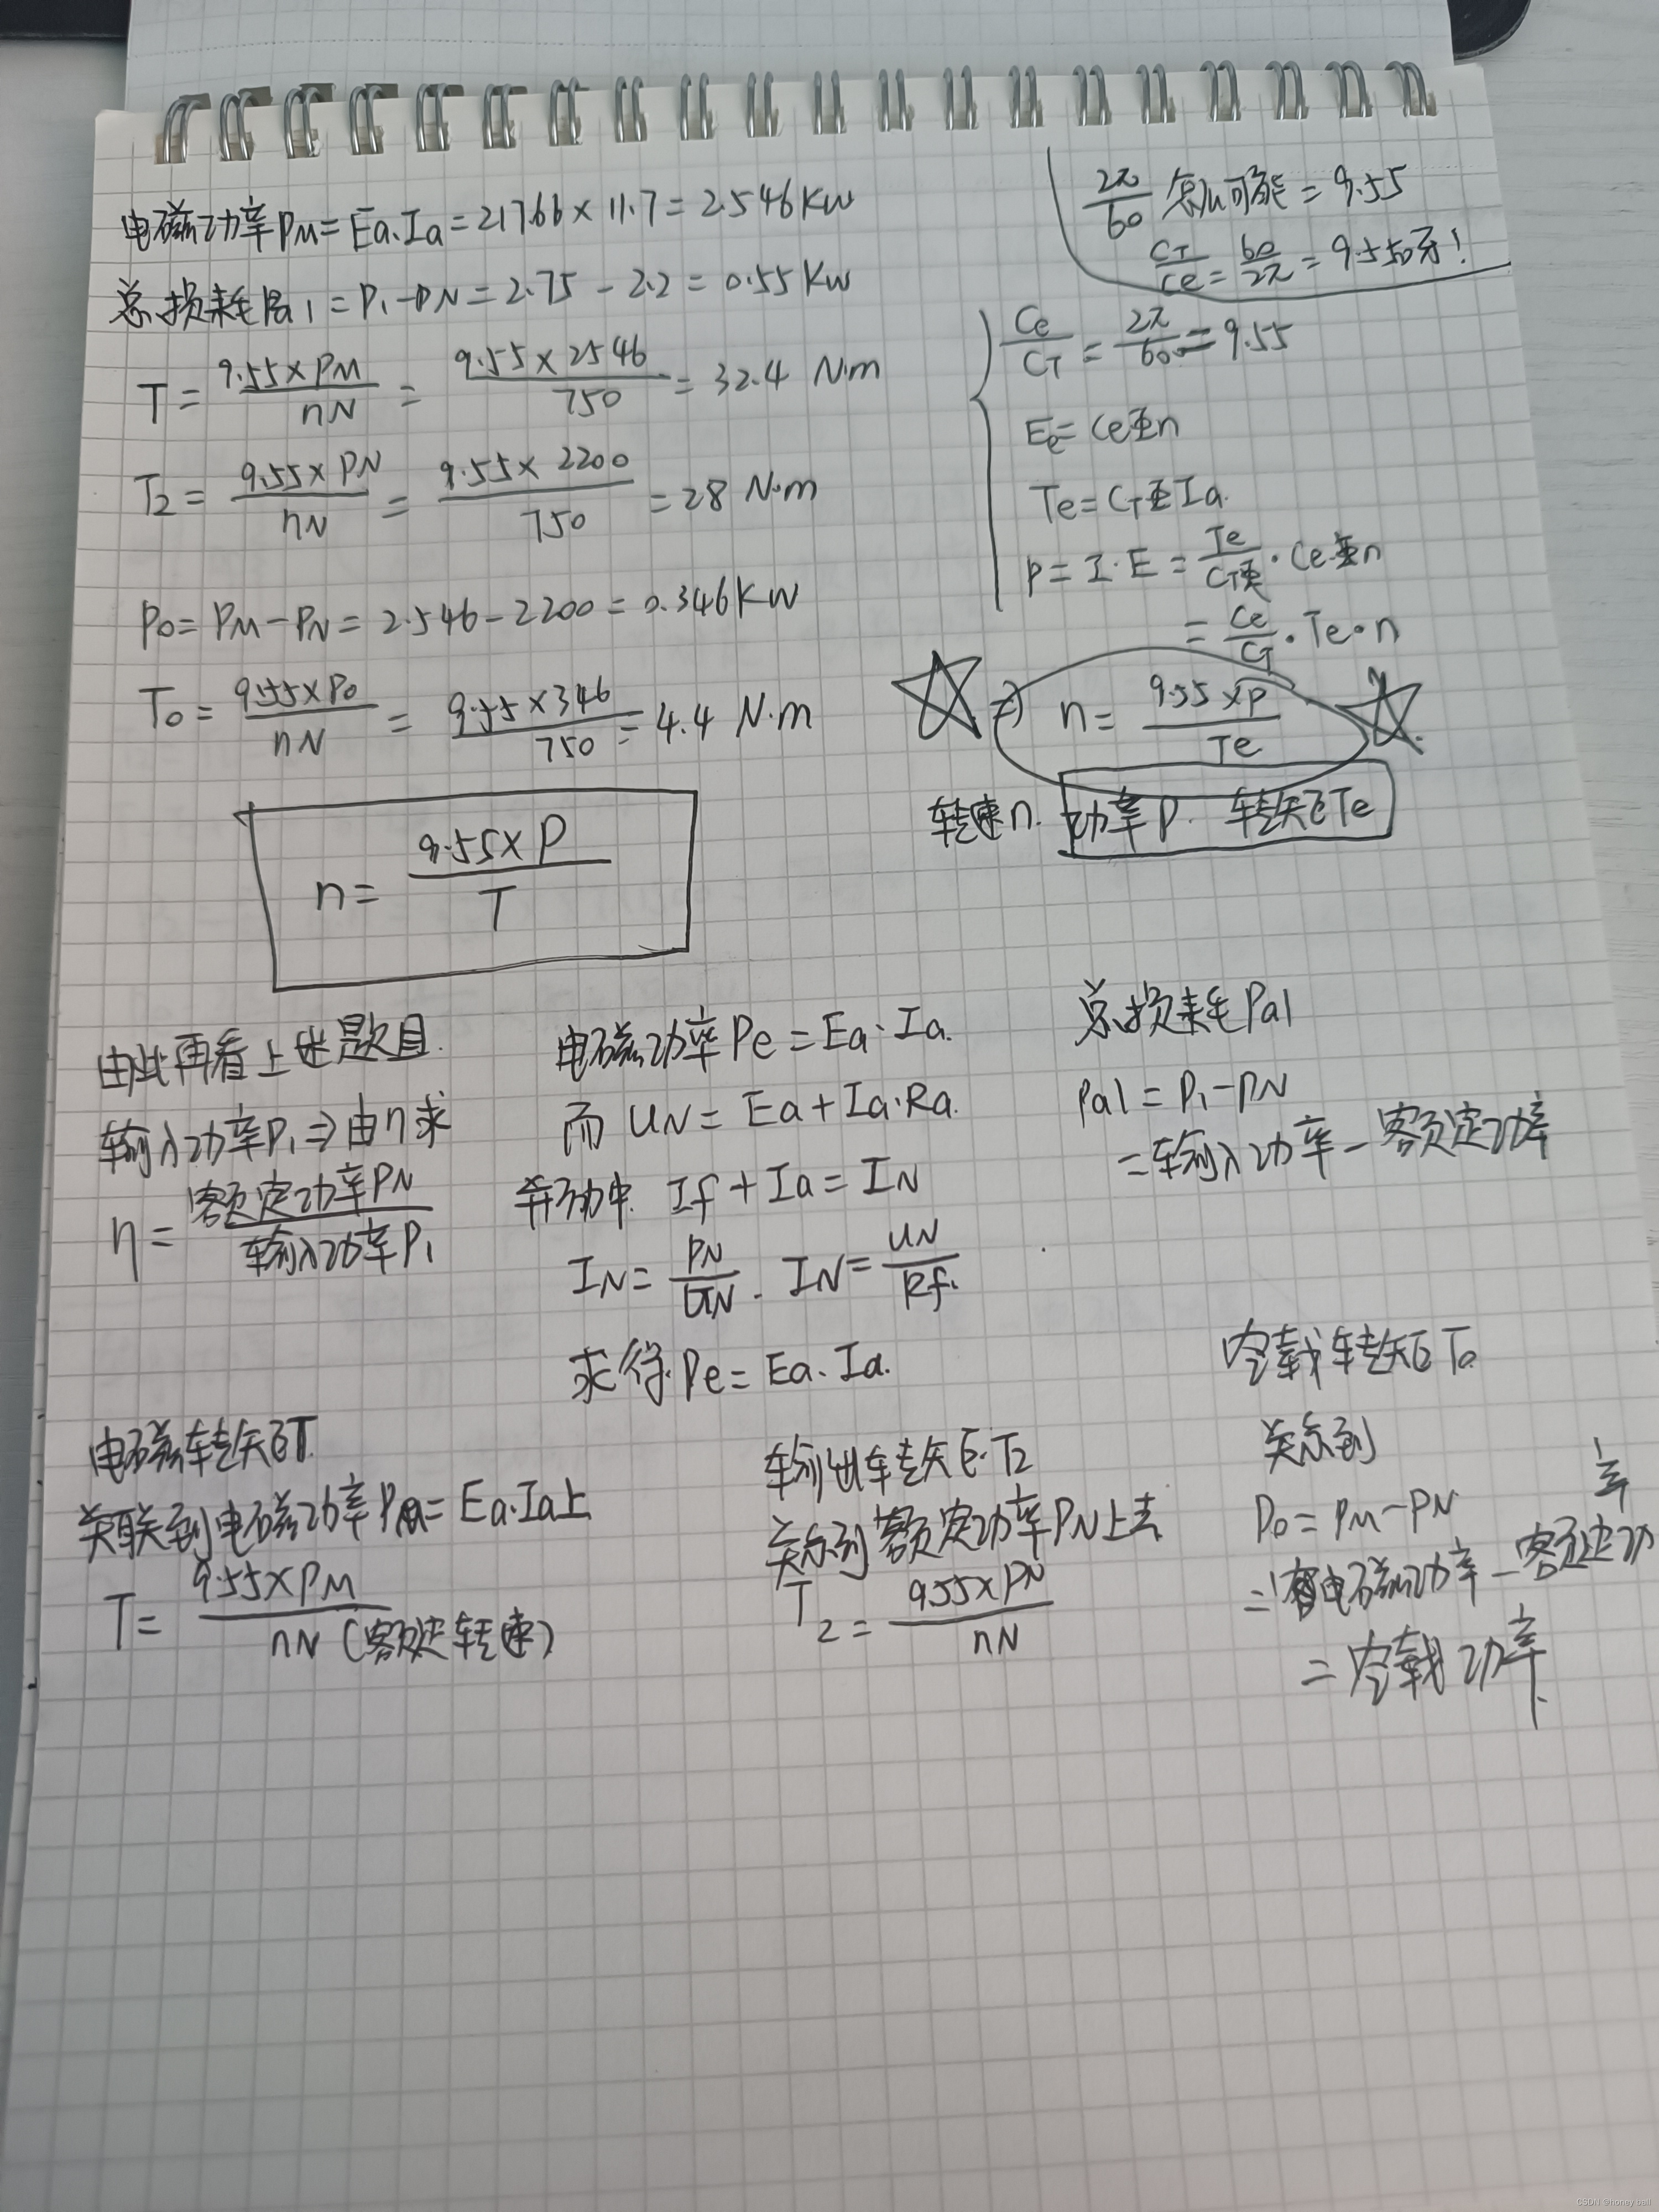 电磁功率PM=Ea.Ia=217.66×11.7=2.546KW
总损耗Pal=P1-PN=2.75-2.2=0.55KW
T=9.55×PM/nN=9.55×2546/750=32.4 N·m
T2=9.55×PN/nN=9.55×2200/750=28 N·m
P0=PM-PN=2.546-2200=0.346KW
T0=9.55×P0/nN=9.55×346/750=4.4 N·m
n=9.55×P/T
2π/60 怎么可能=9.55
CT/Ce=60/2π=9.55
Ce/CT=2π/60=9.55
Ee=CeΦn
Te=CTΦIa.
P=I·E=Te/CTΦ·CeΦn
=Ce/CT·Te·n
⇒ n=9.55×P/Te
转速n. 功率P. 转矩Te
由此再看上述题目.
输入功率P1⇒由η求
η=额定功率PN/输入功率P1
电磁功率Pe=Ea·Ia.
而UN=Ea+Ia·Ra.
并励中. If+Ia=IN
IN=PN/UN. IN=UN/Rf.
求得.Pe=Ea.Ia.
总损耗Pal
Pal=P1-PN
=输入功率-额定功率
电磁转矩T.
关联到电磁功率=Ea.Ia上
T=9.55×PM/nN(额定转速)
输出转矩.T2
关系到额定功率PN上去
T2=9.55×PN/nN
空载转矩T0
关系到
P0=PM-PN
=电磁功率-额定功率
=空载功率.
CSDN @honey ball